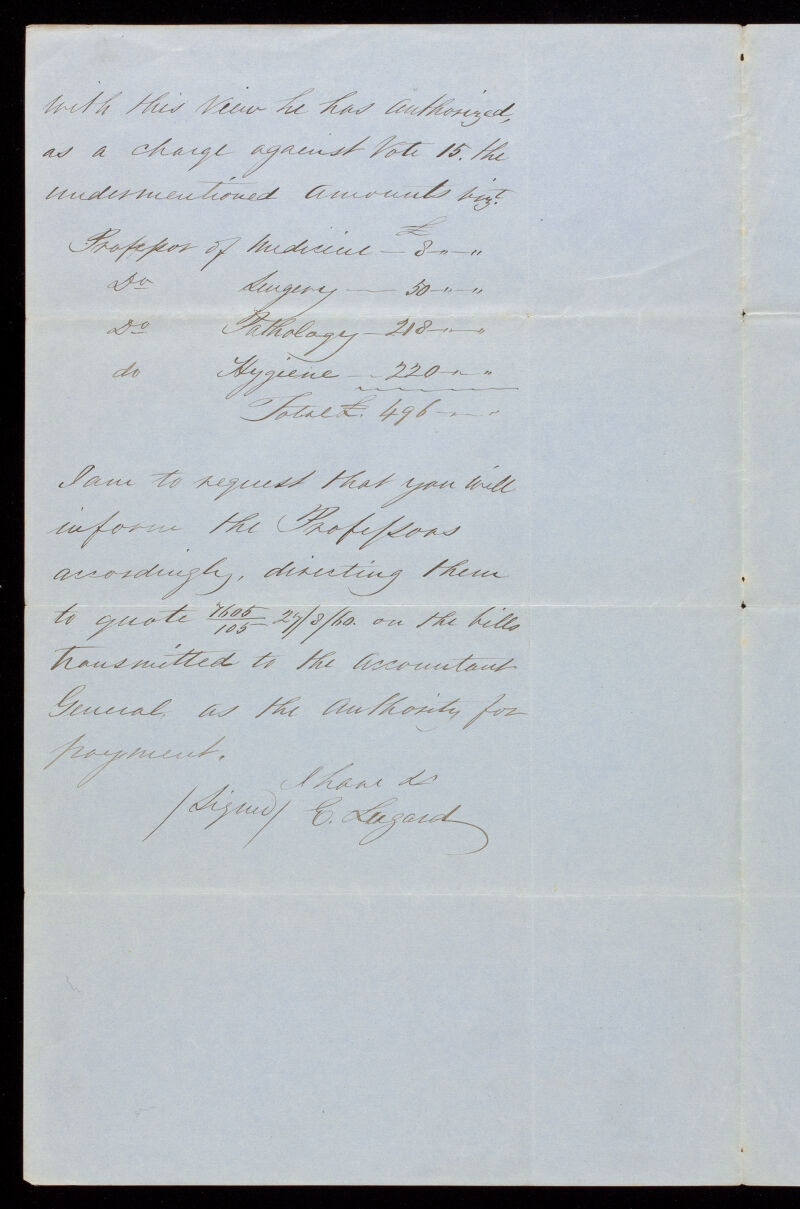 with this View he has authorized,
as a charge against Vote 15. the
undermentioned amounts vizt.
£
Professor of Medicine — 8 " "
Do Surgery — 50 " "
Do Pathology — 218 " "
do Hygiene — 220 " "
Total £. 496 " "
I am to request that you will
inform the Professors
accordingly, directing them
to quote 7605/105 27/8/60. on the bills
transmitted to the Accountant
General, as the authority for
payment.
I have &c
/Signed/ E. Lugard